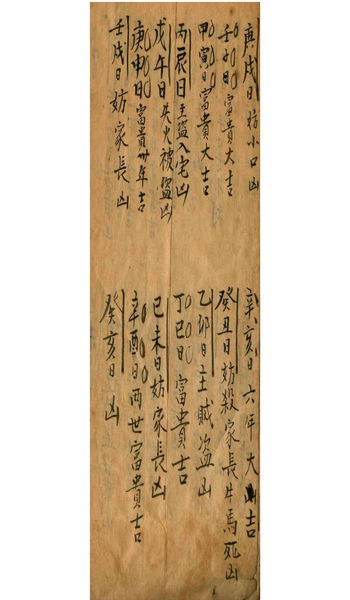 庚戌日妨小口凶
辛亥日六年大吉
壬子日富貴大吉
癸丑日妨殺家長牛馬死凶
甲寅日富貴大吉
乙卯日主賊盜凶
丙辰日主盜入宅凶
丁巳日富貴吉
戊午日失火被盜凶
己未日妨家長凶
庚申日富貴卅年吉
辛酉日兩世富貴吉
壬戌日妨家長凶
癸亥日凶